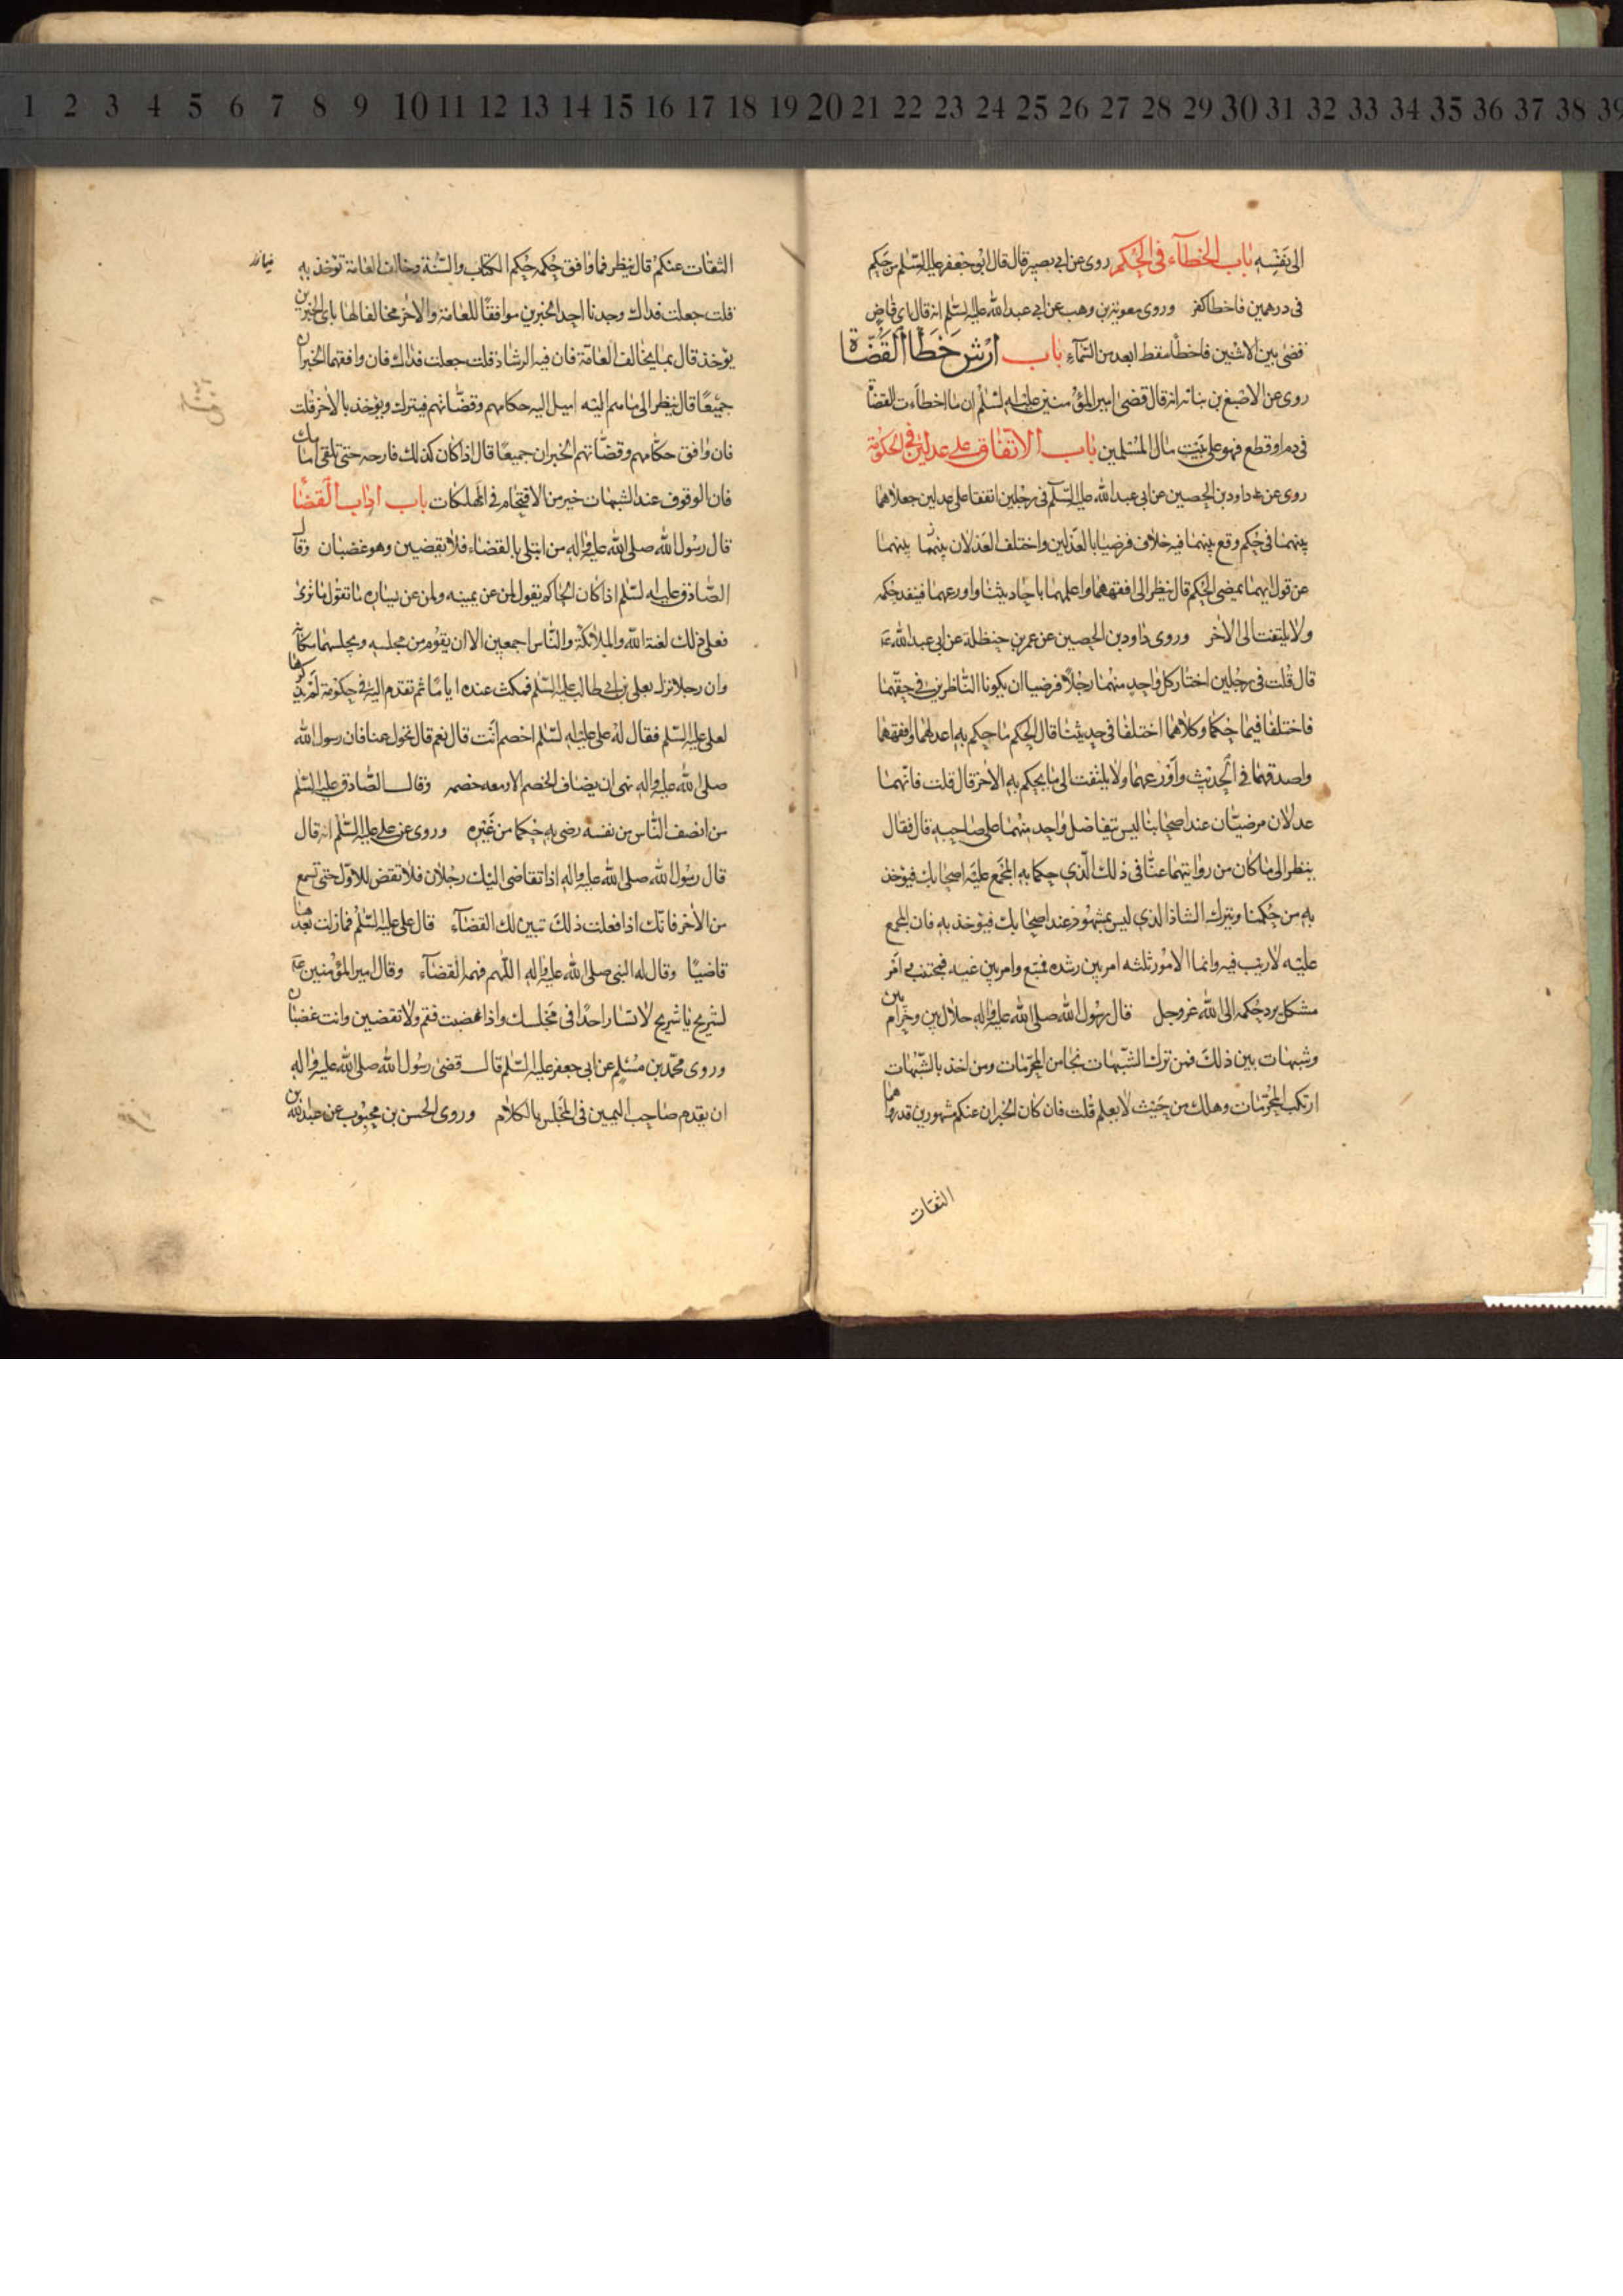 1 2 3 4 5 6 7 8 9 10 11 12 13 14 15 16 17 18 19 20 21 22 23 24 25 26 27 28 29 30 31 32 33 34 35 36 37 38 39
الى نفسه باب الخطاء فى الحكم روى عن ابى بصير قال قال ابو جعفر عليه السلم من حكم
فى درهمين فاخطا كفر وروى معوية بن وهب عن ابى عبد الله عليه السلم انه قال اى قاض
قضى بين الاثنين فاخطأ سقط ابعد من السمآء باب ارش خطأ القضاة
روى عن الاصبغ بن نباته انه قال قضى امير المؤمنين عليه السلم ان ما اخطات القضاة
فى دم او قطع فهو على بيت مال المسلمين باب الاتفاق على عدلين فى الحكومة
روى عن داود بن الحصين عن ابى عبد الله عليه السلم فى رجلين اتفقا على عدلين جعلاهما
بينهما فى حكم وقع بينهما فيه خلاف فرضيا بالعدلين واختلف العدلان بينهما
عن قول ايهما يمضى الحكم قال ينظر الى افقههما واعلمهما باحاديثنا واورعهما فينفذ حكمه
ولا يلتفت الى الاخر وروى داود بن الحصين عن عمر بن حنظلة عن ابى عبد الله ع
قال قلت فى رجلين اختار كل واحد منهما رجلا فرضيا ان يكونا الناظرين فى حقهما
فاختلفا فيما حكما وكلاهما اختلفا فى حديثنا قال الحكم ما حكم به اعدلهما وافقههما
واصدقهما فى الحديث واورعهما ولا يلتفت الى ما يحكم به الاخر قال قلت فانهما
عدلان مرضيان عند اصحابنا ليس يتفاضل واحد منهما على صاحبه قال فقال
ينظر الى ما كان من روايتهما عنا فى ذلك الذي حكما به المجمع عليه اصحابك فيؤخذ
به من حكمنا ويترك الشاذ الذي ليس بمشهور عند اصحابك فيؤخذ به فان المجمع
عليه لا ريب فيه وانما الامور ثلثه امر بين رشده فمتبع وامر بين غيه فمجتنب وامر
مشكل يرد حكمه الى الله عز وجل قال رسول الله صلى الله عليه واله حلال بين وحرام بين
وشبهات بين ذلك فمن ترك الشبهات نجا من المحرمات ومن اخذ بالشبهات
ارتكب المحرمات وهلك من حيث لا يعلم قلت فان كان الخبران عنكم مشهورين قد رواهما
الثقات
الثقات عنكم قال ينظر فما وافق حكمه حكم الكتاب والسنة وخالف العامة تؤخذ به
قلت جعلت فداك وجدنا احد الخبرين موافقا للعامة والاخر مخالفا لها باى الخبرين
يؤخذ قال بما يخالف العامة فان فيه الرشاد قلت جعلت فداك فان وافقهما الخبران
جميعا قال ينظر الى ما هم اليه اميل اليه حكامهم وقضاتهم فيترك ويؤخذ بالاخر قلت
فان وافق حكامهم وقضاتهم الخبران جميعا قال اذا كان كذلك فارجه حتى تلقى امامك
فان الوقوف عند الشبهات خير من الاقتحام فى الهلكات باب اداب القضاء
قال رسول الله صلى الله عليه واله من ابتلى بالقضاء فلا يقضين وهو غضبان وقال
الصادق عليه السلم اذا كان الحاكم يقول لمن عن يمينه ولمن عن يساره ما تقول ما ترى
فعلى ذلك لعنة الله والملائكة والناس اجمعين الا ان يقوم من مجلسه ويجلسهما مكانه
وان رجلا نزل بعلى بن ابى طالب عليه السلم فمكث عنده اياما ثم تقدم اليه فى حكومة لم يذكرها
لعلى عليه السلم فقال له على عليه السلم اخصم انت قال نعم قال تحول عنا فان رسول الله
صلى الله عليه واله نهى ان يضاف الخصم الا ومعه خصمه وقال الصادق عليه السلم
من انصف الناس من نفسه رضى به حكما من غيره وروى عن على عليه السلم انه قال
قال رسول الله صلى الله عليه واله اذا تقاضى اليك رجلان فلا تقض للاول حتى تسمع
من الاخر فانك اذا فعلت ذلك تبين لك القضآء قال على عليه السلم فما زلت بعدها
قاضيا وقال له النبى صلى الله عليه واله اللهم فهمه القضآء وقال امير المؤمنين ع
لشريح يا شريح لا تسار احدا فى مجلسك واذا غضبت فقم ولا تقضين وانت غضبان
وروى محمد بن مسلم عن ابى جعفر عليه السلم قال قضى رسول الله صلى الله عليه واله
ان يقدم صاحب اليمين فى المجلس بالكلام وروى الحسن بن محبوب عن عبد الله بن